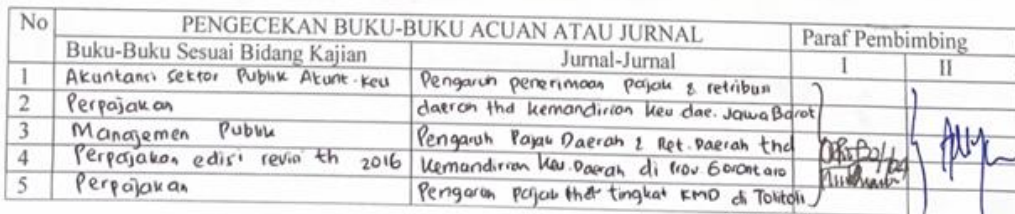 No PENGECEKAN BUKU-BUKU ACUAN ATAU JURNAL Paraf Pembimbing
Buku-Buku Sesuai Bidang Kajian Jurnal-Jurnal I II
1 Akuntansi Sektor Publik Akunt. keu Pengaruh penerimaan pajak & retribusi
2 Perpajakan daerah thd kemandirian keu dae. Jawa Barat
3 Manajemen Publik Pengaruh Pajak Daerah & Ret. Daerah thd
4 Perpajakan edisi revisi th 2016 Kemandirian keu. Daerah di Prov Gorontalo
5 Perpajakan Pengaruh pajak thdp tingkat KMD di Tolitoli